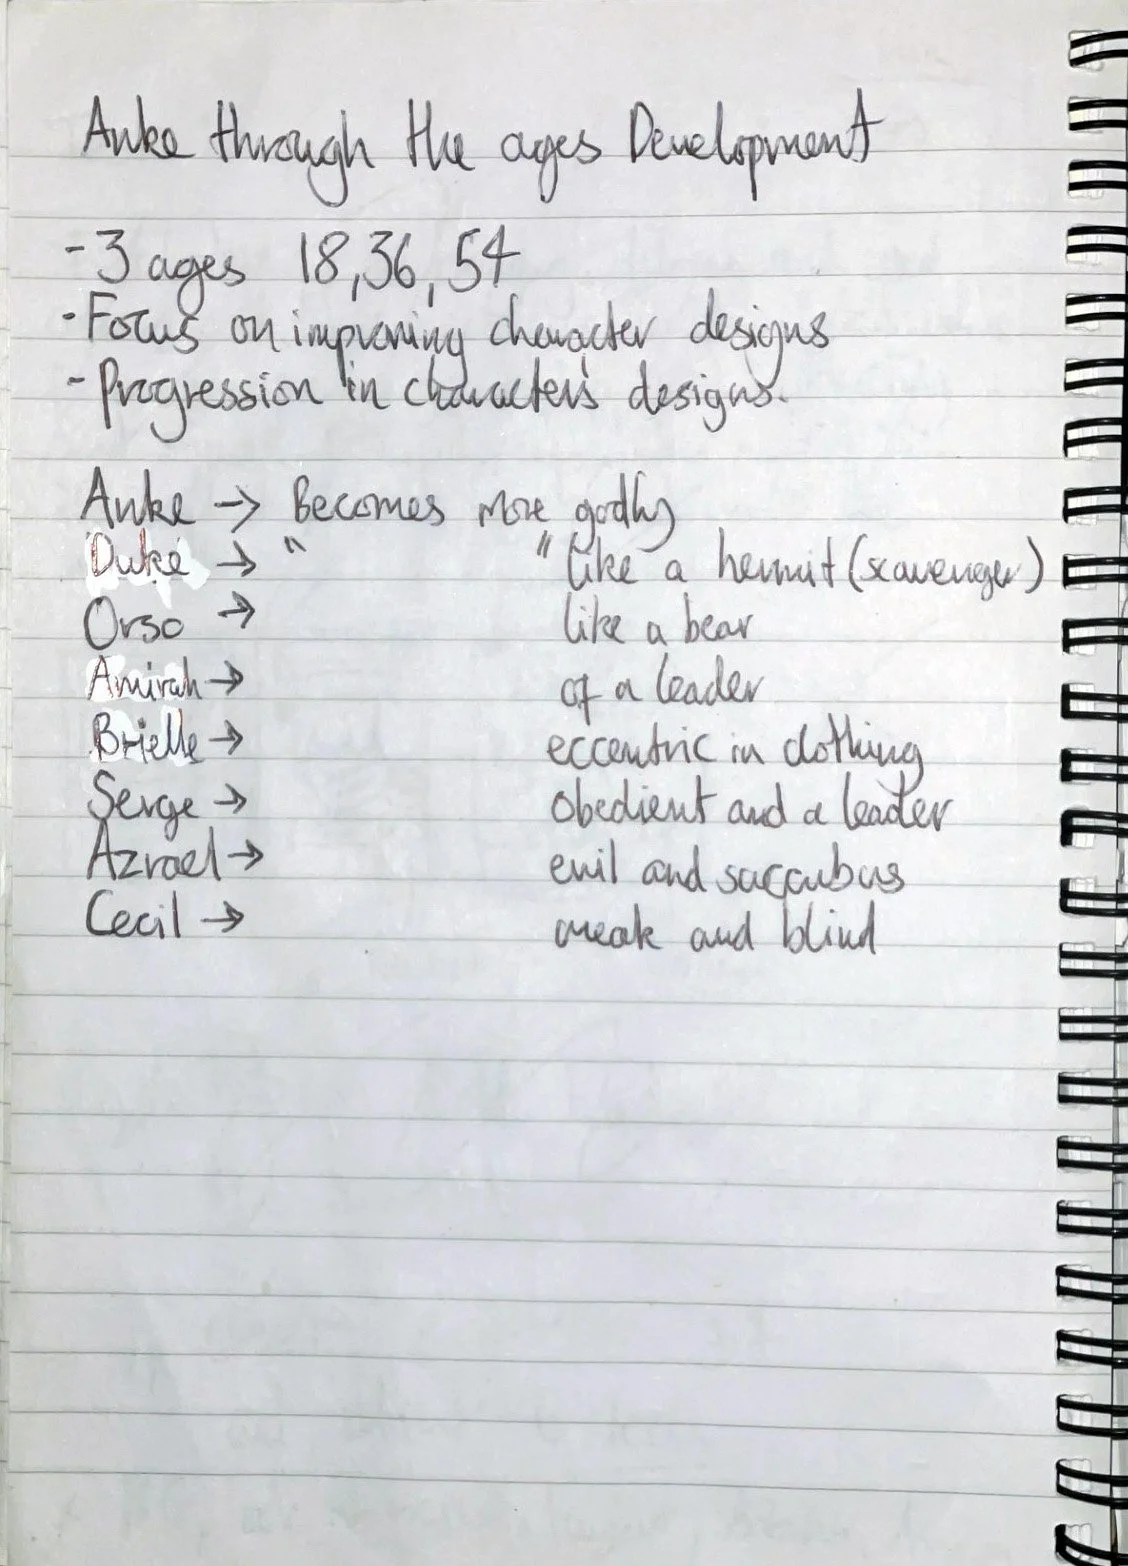 Anke through the ages Development
- 3 ages 18, 36, 54
- Focus on improving character designs
- Progression in character's designs.
Anke → Becomes more godly
Duke → " " like a hermit (scavenger)
Orso → like a bear
Amirah → of a leader
Brielle → eccentric in clothing
Serge → obedient and a leader
Azrael → evil and succubus
Cecil → weak and blind